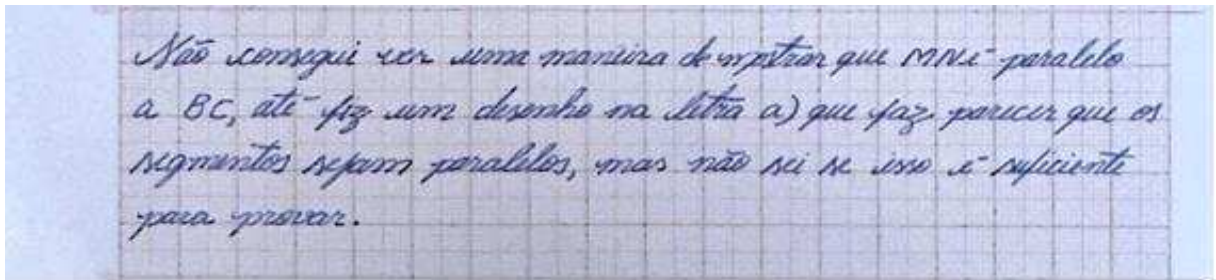 Não consegui ver uma maneira de mostrar que MN é paralelo
a BC, até fiz um desenho na letra a) que faz parecer que os
segmentos sejam paralelos, mas não sei se isso é suficiente
para provar.